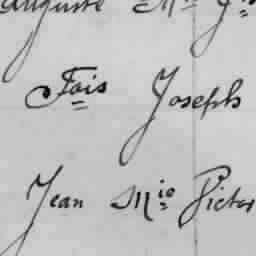 Auguste Mie
Fois Joseph
Jean Mie Victor